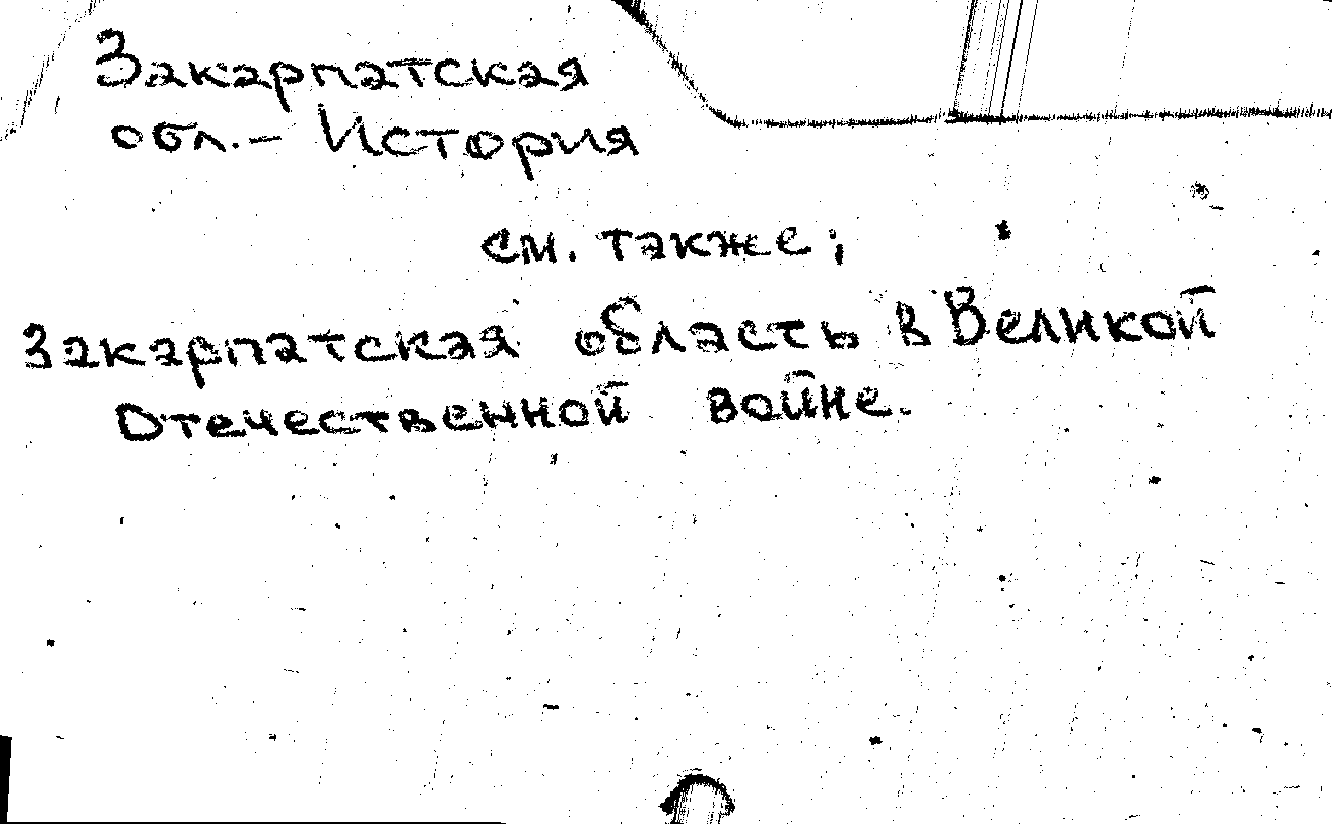 Закарпатская
обл. - История
см. также;
Закарпатская область в Великой
Отечественной войне.